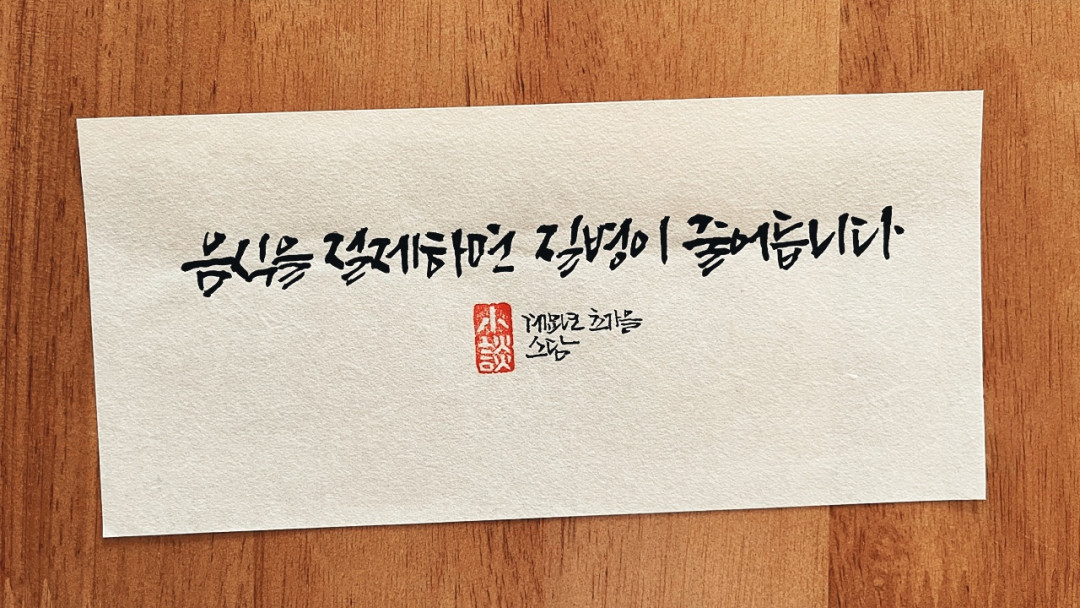 음식을 절제하면 질병이 줄어듭니다.
小談
초가을
소담